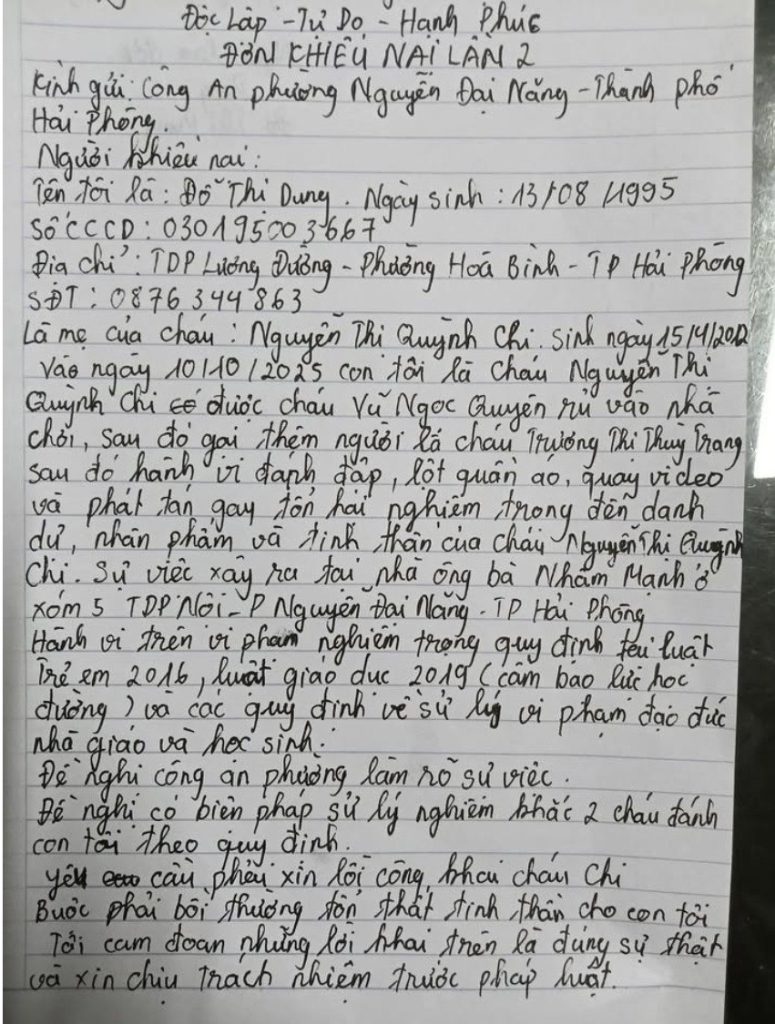 Độc Lập - Tự Do - Hạnh Phúc
ĐƠN KHIẾU NAI LẦN 2
Kính gửi: Công An phường Nguyễn Đại Năng - Thành phố
Hải Phòng.
Người khiếu nại:
Tên tôi là: Đỗ Thị Dung. Ngày sinh: 13/08/1995
Số CCCD: 030195003667
Địa chỉ: TDP Lương Đường - Phường Hoà Bình - TP Hải Phòng
SĐT: 0876344863
Là mẹ của cháu: Nguyễn Thị Quỳnh Chi. Sinh ngày 15/4/2012
Vào ngày 10/10/2025 con tôi là cháu Nguyễn Thị
Quỳnh Chi có được cháu Vũ Ngọc Quyên rủ vào nhà
chơi, sau đó gọi thêm người là cháu Trương Thị Thuỳ Trang
sau đó hành vi đánh đập, lột quần áo, quay video
và phát tán gay tổn hại nghiêm trọng đến danh
dự, nhân phẩm và tinh thần của cháu Nguyễn Thị Quỳnh
Chi. Sự việc xảy ra tại nhà ông bà Nhâm Mạnh ở
xóm 5 TDP Nội - P Nguyễn Đại Năng - TP Hải Phòng
Hành vi trên vi phạm nghiêm trọng quy định tại luật
Trẻ em 2016, luật giáo dục 2019 (cấm bạo lực học
đường) và các quy định về sử lý vi phạm đạo đức
nhà giáo và học sinh.
Đề nghị công an phường làm rõ sự việc.
Đề nghị có biện pháp sử lý nghiêm khắc 2 cháu đánh
con tôi theo quy định.
yêu cầu phải xin lỗi công khai cháu Chi
Buộc phải bồi thường tổn thất tinh thần cho con tôi
Tôi cam đoan những lời khai trên là đúng sự thật
và xin chịu trách nhiệm trước pháp luật.